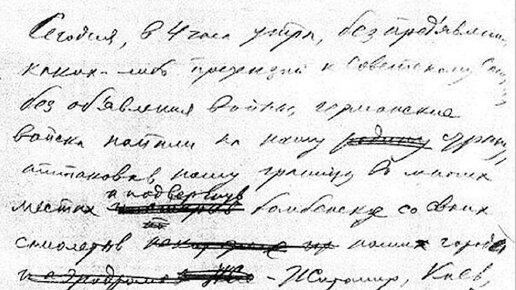 Сегодня, в 4 часа утра, без предъявления
каких-либо претензий к Советскому Союзу,
без объявления войны, германские
войска напали на нашу родину страну,
атаковав нашу границу в многих
и подвергнув
местах бомбежке со своих
самолетов наши города
Житомир, Киев,